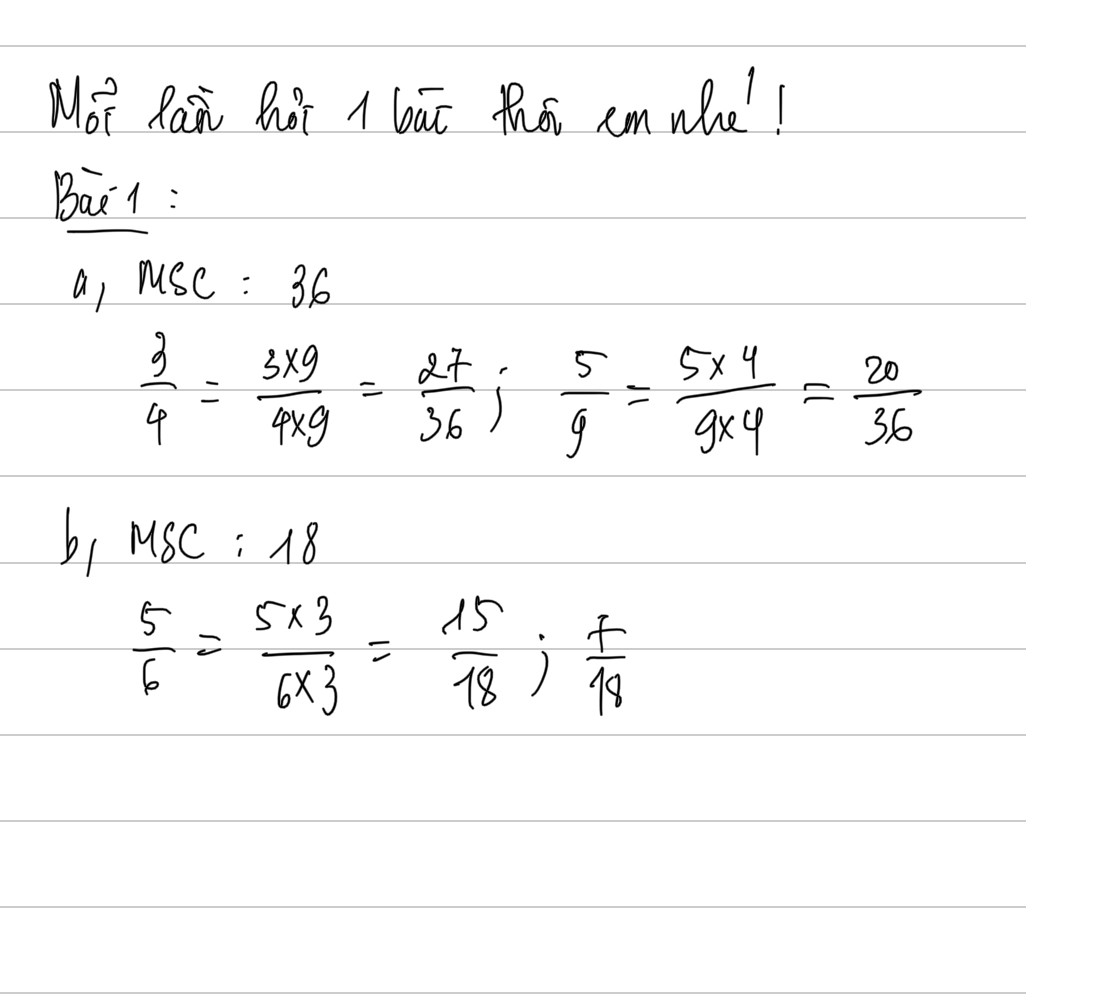 Mỗi lần hỏi 1 bài thôi em nhé!
Bài 1 :
a, MSC : 36
3/4 = 3x9/4x9 = 27/36 ; 5/9 = 5x4/9x4 = 20/36
b, MSC : 18
5/6 = 5x3/6x3 = 15/18 ; 7/18